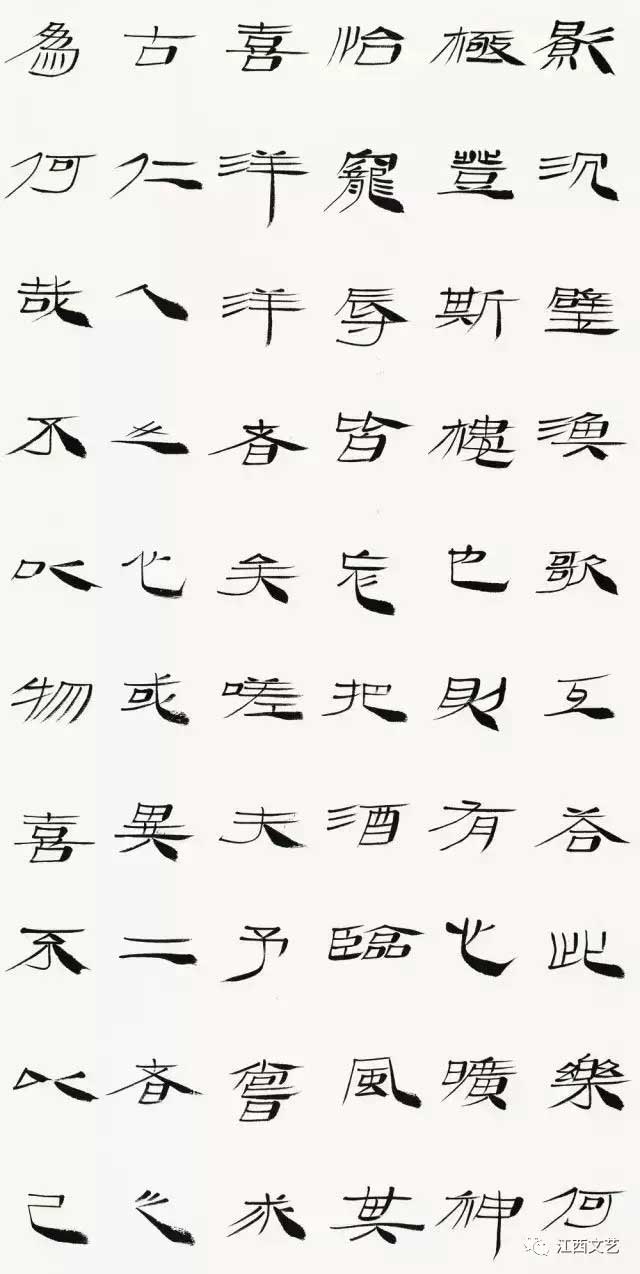 影沉璧漁歌互答此樂何
極登斯樓也則有心曠神
怡寵辱皆忘把酒臨風其
喜洋洋者矣嗟夫予嘗求
古仁人之心或異二者之
為何哉不以物喜不以己
江西文艺